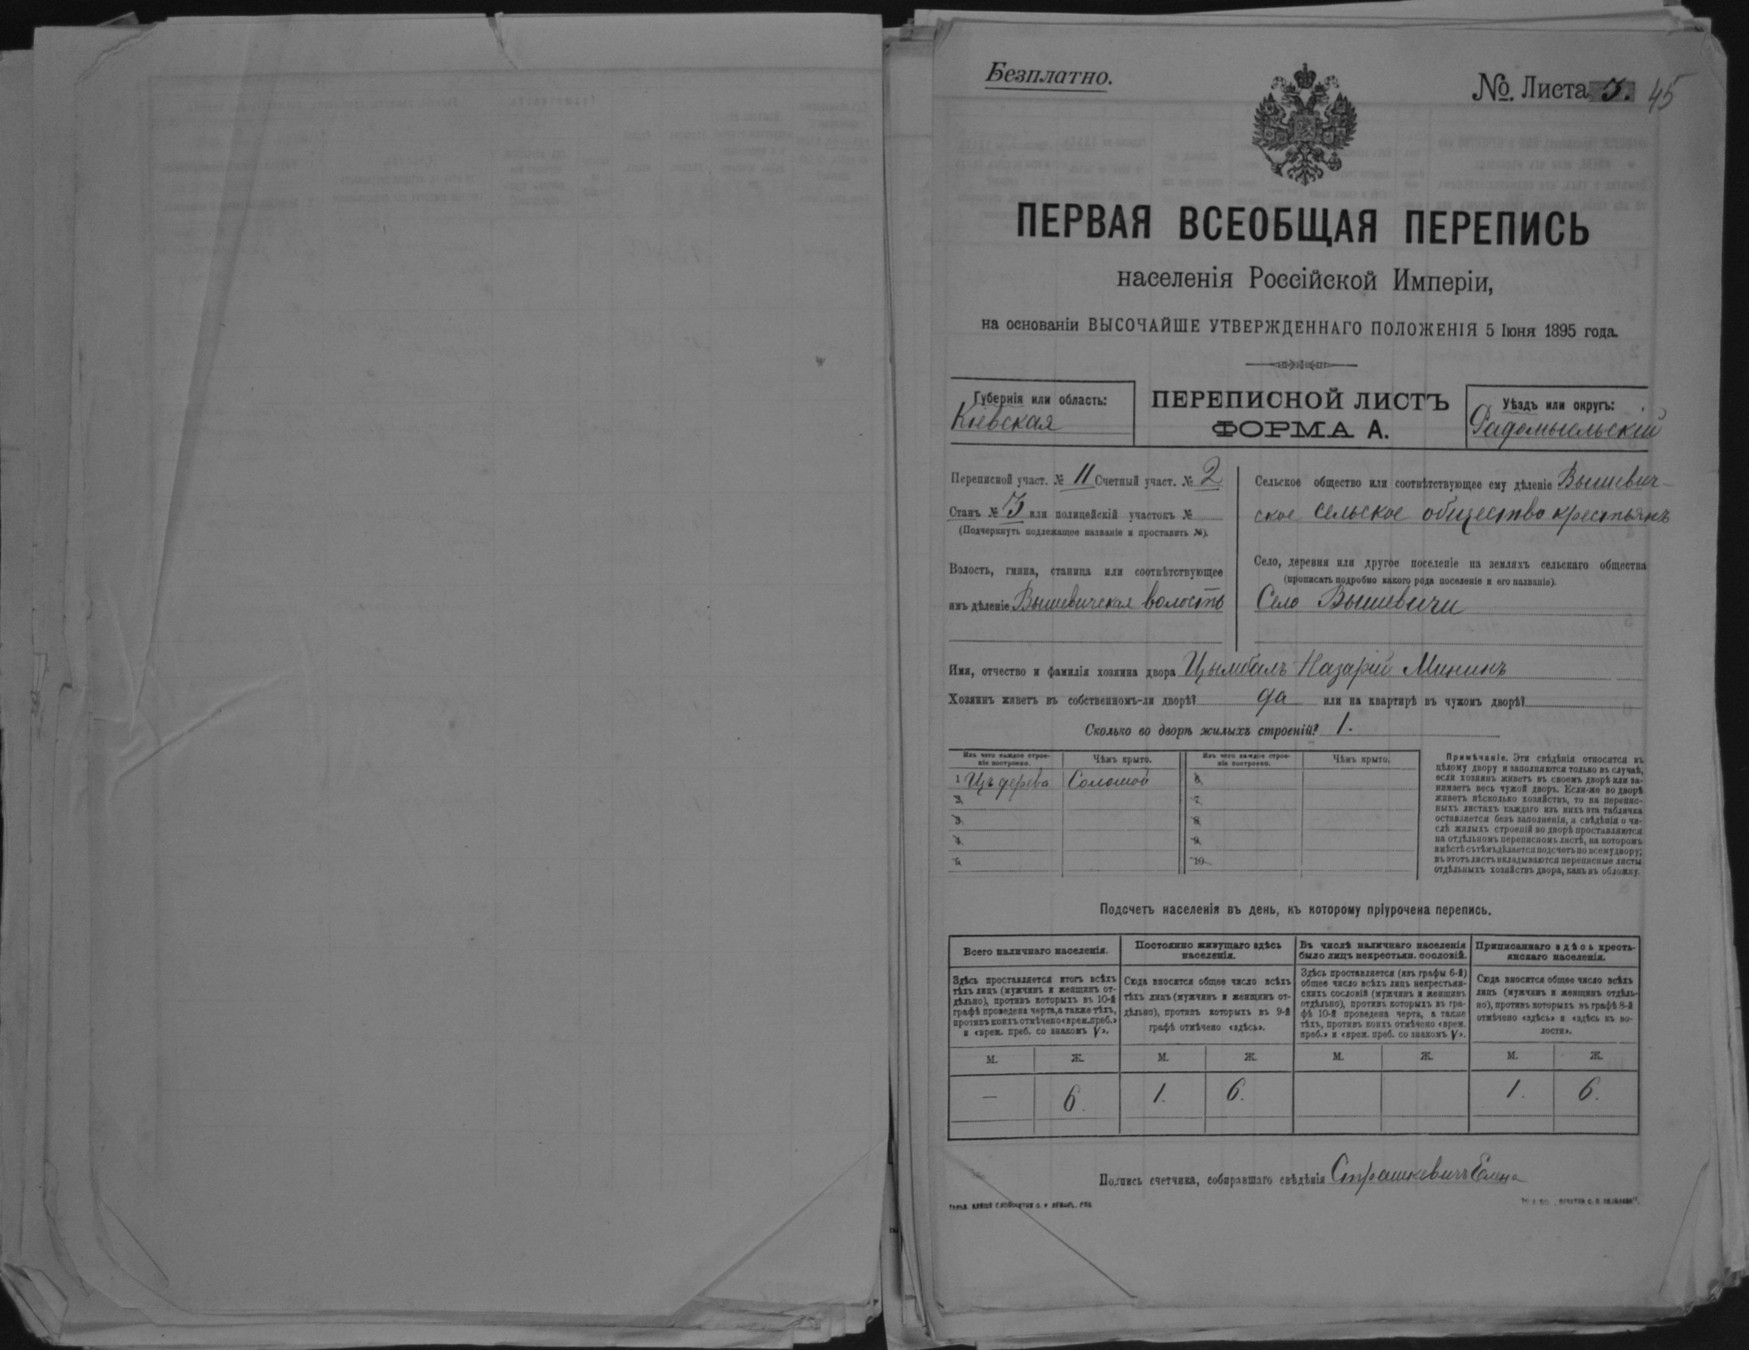 Безплатно.
№. Листа 3. 45
ПЕРВАЯ ВСЕОБЩАЯ ПЕРЕПИСЬ
населенія Россійской Имперіи,
на основаніи ВЫСОЧАЙШЕ УТВЕРЖДЕННАГО ПОЛОЖЕНІЯ 5 Іюня 1895 года.
Губернія или область:
Кіевская
ПЕРЕПИСНОЙ ЛИСТЪ
ФОРМА А.
Уѣздъ или округъ:
Радомысльскій
Переписной участ. № 11 Счетный участ. № 2
Станъ № 3 или полицейскій участокъ №
(Подчеркнуть подлежащее названіе и проставить №).
Волость, гмина, станица или соотвѣтствующее
имъ дѣленіе Вышевичская волость
Сельское общество или соотвѣтствующее ему дѣленіе Вышевич-
ское сельское общество крестьянъ
Село, деревня или другое поселеніе на земляхъ сельскаго общества
(прописать подробно какого рода поселеніе и его названіе).
Село Вышевичи
Имя, отчество и фамилія хозяина двора Цымбалъ Назарій Мининъ
Хозяинъ живетъ въ собственномъ-ли дворѣ? да или на квартирѣ въ чужомъ дворѣ?
Сколько во дворѣ жилыхъ строеній? 1.
Изъ чего каждое строе-
ніе построено.
Чѣмъ крыто.
Изъ чего каждое строе-
ніе построено.
Чѣмъ крыто.
1 Изъ дерева Соломой 6
2 7
3 8
4 9
5 10
Примѣчаніе. Эти свѣдѣнія относятся къ
цѣлому двору и заполняются только въ случаѣ,
если хозяинъ живетъ въ своемъ дворѣ или за-
нимаетъ весь чужой дворъ. Если-же во дворѣ
живетъ нѣсколько хозяйствъ, то на перепис-
ныхъ листахъ каждаго изъ нихъ эта табличка
оставляется безъ заполненія, а свѣдѣнія о чи-
слѣ жилыхъ строеній во дворѣ проставляются
на отдѣльномъ переписномъ листѣ, на которомъ
вмѣстѣ съ тѣмъ дѣлается подсчетъ по всему двору;
въ этотъ листъ вкладываются переписные листы
отдѣльныхъ хозяйствъ двора, какъ въ обложку.
Подсчетъ населенія въ день, къ которому пріурочена перепись.
Всего наличнаго населенія.
Постоянно живущаго здѣсь
населенія.
Въ числѣ наличнаго населенія
было лицъ некрестьян. сословій.
Приписаннаго здѣсь кресть-
янскаго населенія.
Здѣсь проставляется итогъ всѣхъ
тѣхъ лицъ (мужчинъ и женщинъ от-
дѣльно), противъ которыхъ въ 10-й
графѣ проведена черта, а также тѣхъ,
противъ коихъ отмѣчено «врем. преб.»
и «врем. преб. со знакомъ V».
Сюда вносится общее число всѣхъ
тѣхъ лицъ (мужчинъ и женщинъ от-
дѣльно), противъ которыхъ въ 9-й
графѣ отмѣчено «здѣсь».
Здѣсь проставляется (изъ графы 6-й)
общее число всѣхъ лицъ некрестьян-
скихъ сословій (мужчинъ и женщинъ
отдѣльно), противъ которыхъ въ гра-
фѣ 10-й проведена черта, а также
тѣхъ, противъ коихъ отмѣчено «врем.
преб.» и «врем. преб. со знакомъ V».
Сюда вносится общее число всѣхъ
лицъ (мужчинъ и женщинъ отдѣль-
но), противъ которыхъ въ графѣ 8-й
отмѣчено «здѣсь» и «здѣсь въ во-
лости».
М. Ж. М. Ж. М. Ж. М. Ж.
— 6. 1. 6. 1. 6.
Подпись счетчика, собиравшаго свѣдѣнія Страшкевичъ